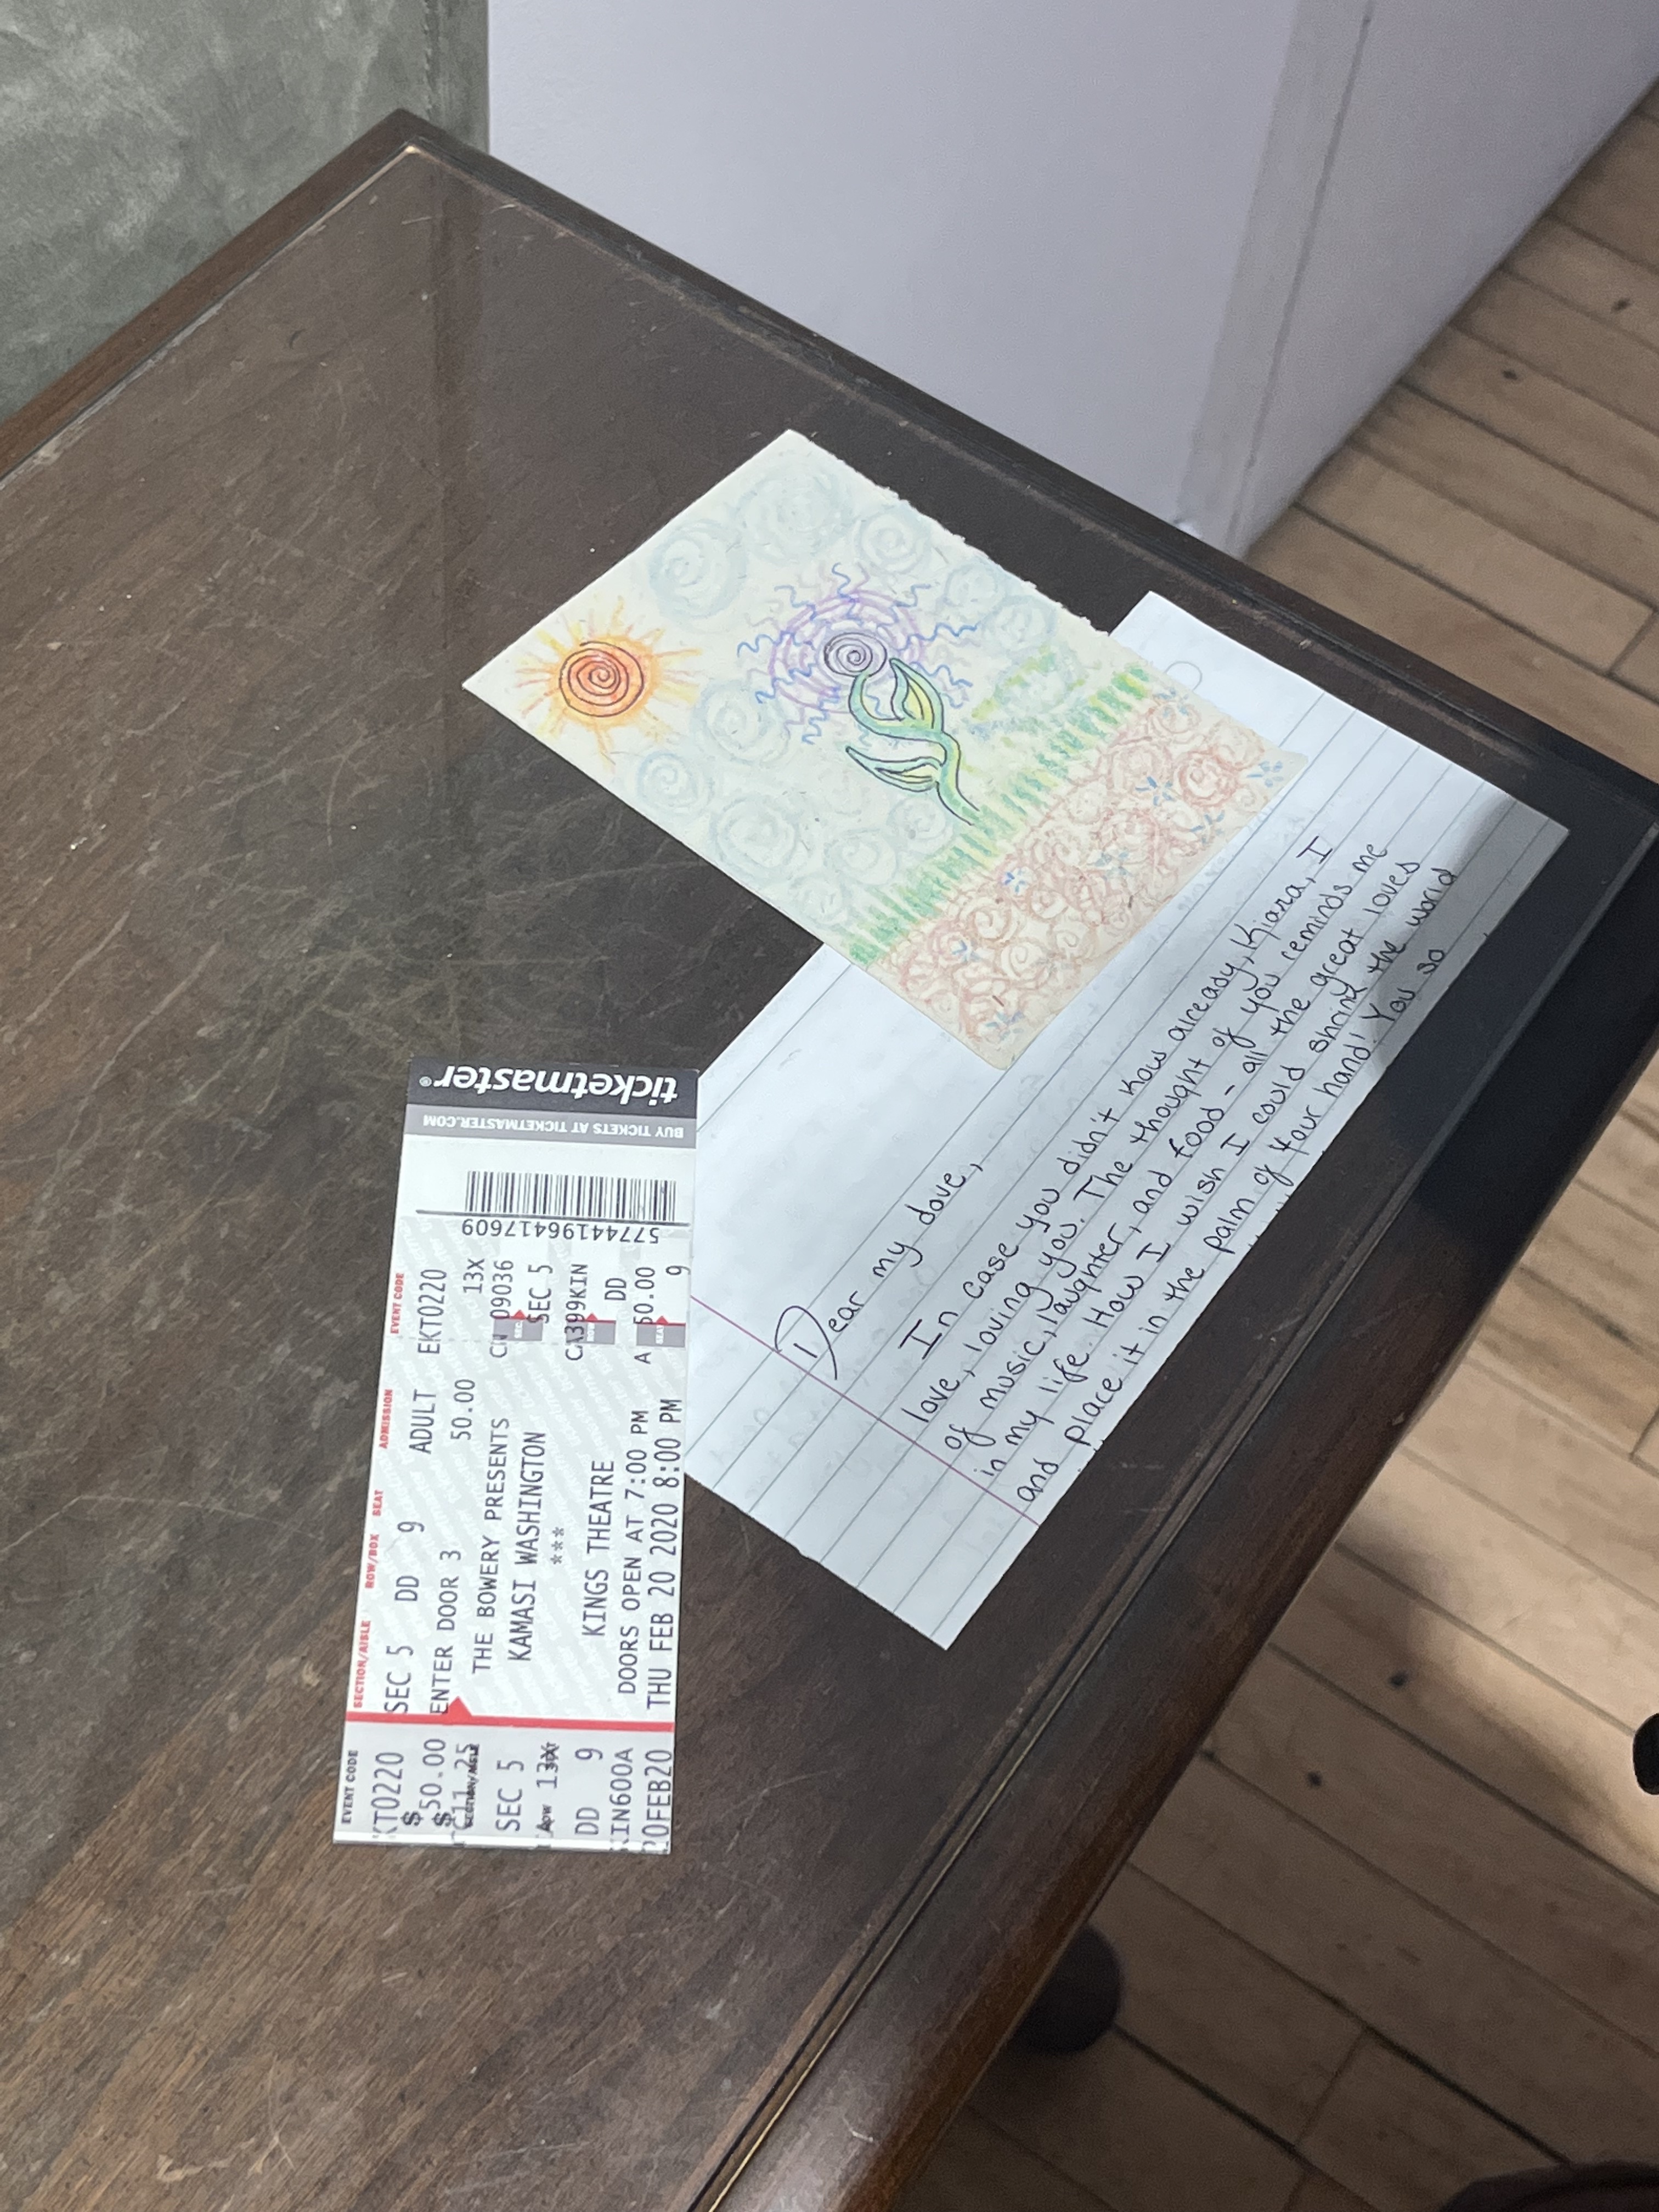 ticketmaster®
BUY TICKETS AT TICKETMASTER.COM
57744196417609
EVENT CODE
SECTION/AISLE ROW/BOX SEAT ADMISSION EVENT CODE
SEC 5 DD 9 ADULT EKT0220
ENTER DOOR 3 50.00 13X
THE BOWERY PRESENTS CN 09036
KAMASI WASHINGTON SEC 5
*** CA399KIN
KINGS THEATRE DD
DOORS OPEN AT 7:00 PM A 50.00
THU FEB 20 2020 8:00 PM 9
KT0220
$50.00
$ 11.25
SECTION/AISLE
SEC 5
ROW 13X
DD 9
KIN600A
20FEB20
Dear my dove,
In case you didn't know already, Kiara, I
love, loving you. The thought of you reminds me
of music, laughter, and food - all the great loves
in my life. How I wish I could shrink the world
and place it in the palm of your hand! You so